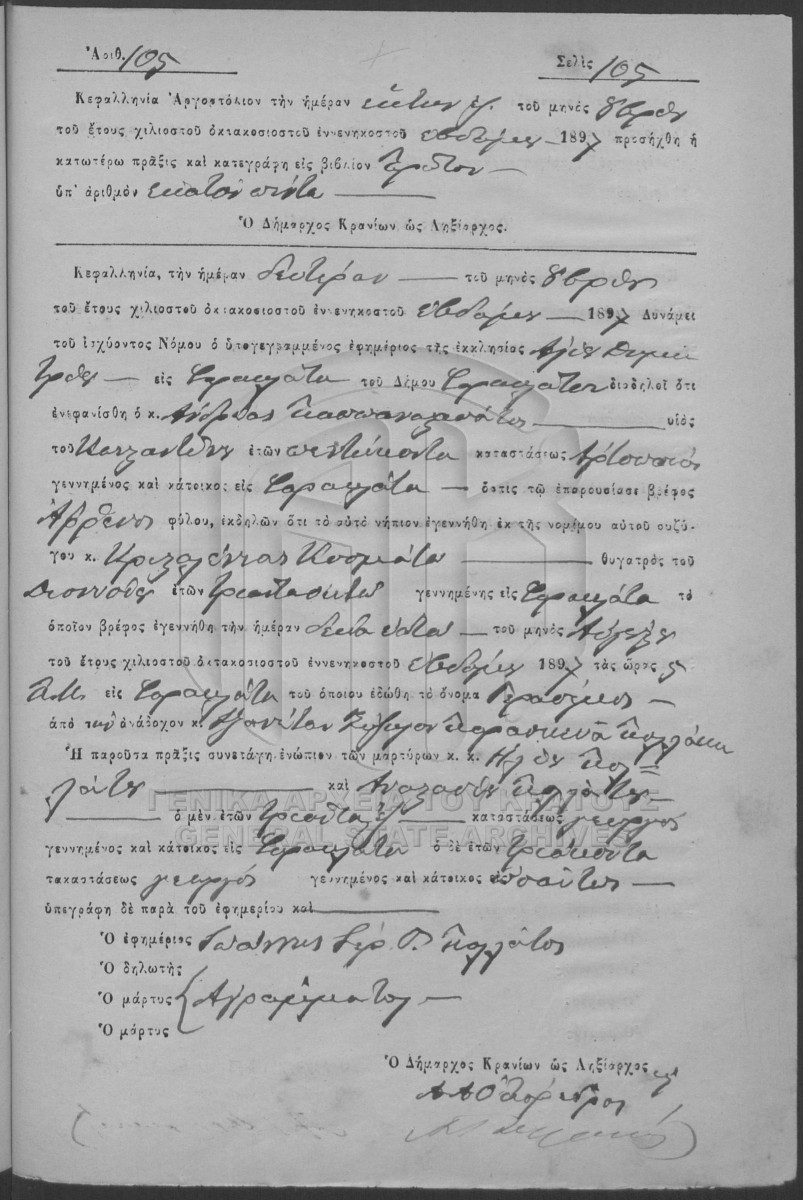 Ἀριθ. 105 Σελὶς 105
Κεφαλληνία Ἀργοστόλιον τὴν ἡμέραν ἕκτην 6. τοῦ μηνὸς 8βρίου
τοῦ ἔτους χιλιοστοῦ ὀκτακοσιοστοῦ ἐννενηκοστοῦ ἑβδόμου — 1897 προσήχθη ἡ
κατωτέρω πρᾶξις καὶ κατεγράφη εἰς βιβλίον Πρῶτον —
ὑπ' ἀριθμὸν ἑκατὸν πέντε —
Ὁ Δήμαρχος Κρανίων ὡς Ληξίαρχος.
Κεφαλληνία, τὴν ἡμέραν δευτέραν — τοῦ μηνὸς 8βρίου
τοῦ ἔτους χιλιοστοῦ ὀκτακοσιοστοῦ ἐννενηκοστοῦ ἑβδόμου — 1897 Δυνάμει
τοῦ ἰσχύοντος Νόμου ὁ ὑπογεγραμμένος ἐφημέριος τῆς ἐκκλησίας Ἁγίου Δημη
τρίου — εἰς Φαρακλάτα τοῦ Δήμου Φαρακλάτων διαδηλοῖ ὅτι
ἐνεφανίσθη ὁ κ. Ἀνδρέας — υἱὸς
τοῦ Κωνσταντίνου ἐτῶν πεντήκοντα καταστάσεως
γεννημένος καὶ κάτοικος εἰς Φαρακλάτα — ὅστις τῷ ἐπαρουσίασε βρέφος
ἄρρενος φύλου, ἐκδηλῶν ὅτι τὸ αὐτὸ νήπιον ἐγεννήθη ἐκ τῆς νομίμου αὐτοῦ συζύ-
γου κ. Κοσμάτου — θυγατρὸς τοῦ
Διονυσίου ἐτῶν τριάκοντα γεννημένης εἰς Φαρακλάτα τὸ
ὁποῖον βρέφος ἐγεννήθη τὴν ἡμέραν δεκάτην — τοῦ μηνὸς Αὐγούστου
τοῦ ἔτους χιλιοστοῦ ὀκτακοσιοστοῦ ἐννενηκοστοῦ ἑβδόμου 1897 τὰς ὥρας 5
Π.Μ. εἰς Φαρακλάτα τοῦ ὁποίου ἐδώθη τὸ ὄνομα Γεράσιμος —
ἀπὸ τὴν ἀνάδοχον κ.
Ἡ παροῦσα πρᾶξις συνετάγη ἐνώπιον τῶν μαρτύρων κ. κ. Ἠλίου Κολ
λάτου — καὶ Ἀναστασίου Κολλάτου —
— ὁ μὲν ἐτῶν — καταστάσεως γεωργὸς
γεννημένος καὶ κάτοικος εἰς Φαρακλάτα ὁ δὲ ἐτῶν τριάκοντα
τακαστάσεως γεωργὸς γεννημένος καὶ κάτοικος ὡσαύτως —
ὑπεγράφη δὲ παρὰ τοῦ ἐφημερίου καὶ —
Ὁ ἐφημέριος Ἰωάννης Κολλάτος
Ὁ δηλωτὴς
Ὁ μάρτυς Ἀγράμματοι —
Ὁ μάρτυς
Ὁ Δήμαρχος Κρανίων ὡς Ληξίαρχος
ΓΕΝΙΚΑ ΑΡΧΕΙΑ ΤΟΥ ΚΡΑΤΟΥΣ
GENERAL STATE ARCHIVES